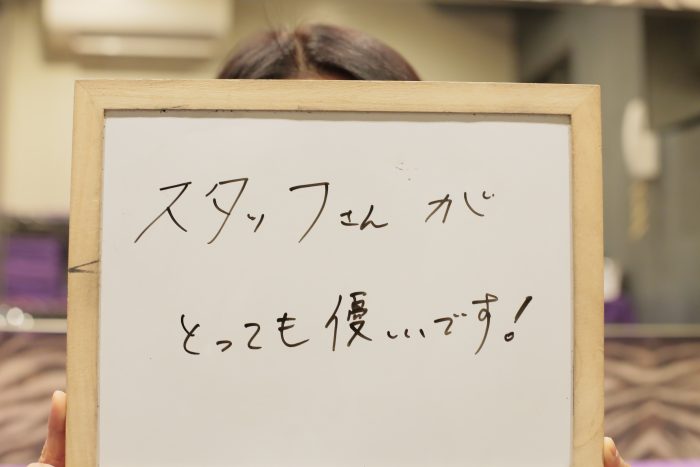 スタッフさんが
とっても優しいです!